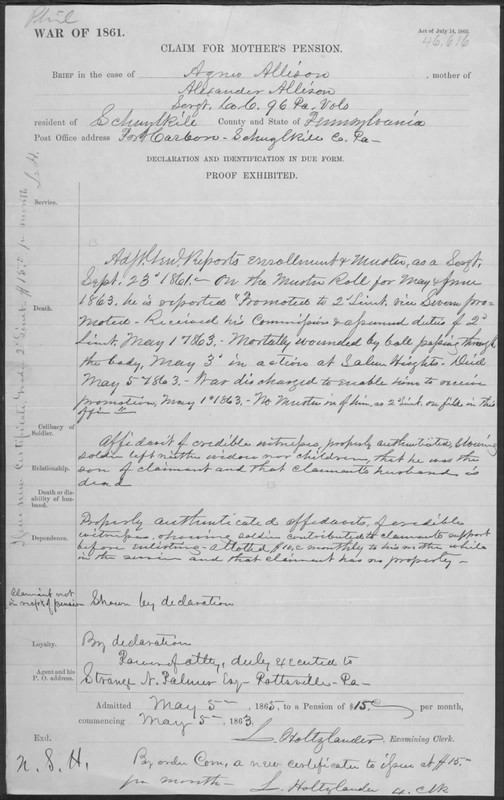 Phil
WAR OF 1861.
Act of July 14, 1862.
46,616
CLAIM FOR MOTHER'S PENSION.
BRIEF in the case of Agnes Allison, mother of
Alexander Allison
Sergt. Co. C. 96 Pa. Vols
resident of Schuylkill County and State of Pennsylvania
Post Office address Port Carbon - Schuylkill Co. Pa-
DECLARATION AND IDENTIFICATION IN DUE FORM.
PROOF EXHIBITED.
Service.
Adjt. Genl. Reports enrollment & Muster, as a Sergt.
Sept. 23d 1861. - On the Muster Roll for May & June
1863. he is reported "Promoted to 2d Lieut. vice Severn pro-
moted - Received his Commission & assumed duties of 2d
Lieut May 1st 1863. - Mortally wounded by ball passing through
the body, May 3d in action at Salem Heights - Died
May 5th 1863. - Was discharged to enable him to receive
promotion, May 1st 1863. - No Muster in of him, as 2d Lieut. on file in this
Office"
Death.
Celibacy of
Soldier.
Affidavit of credible witnesses, properly authenticated, showing
soldier left neither widow nor children, that he was the
son of claimant and that claimants husband is
dead
Relationship.
Death or dis-
ability of hus-
band.
Properly authenticated affidavits, of credible
witnesses, showing soldier contributed to claimants support
before enlisting - allotted $10, monthly to his mother while
in the service and that claimant has no property -
Dependence.
Claimant not
in receipt of pension
Shown by declaration
Loyalty.
By declaration
Power of atty, duly executed to
Agent and his
P. O. address.
Strange N. Palmer Esq - Pottsville - Pa -
Admitted May 5th, 1865, to a Pension of $15 per month,
commencing May 5th, 1863.
L. Holtzlander, Examining Clerk.
Exd.
N. S. H.
By order Com, a new certificate to issue at $15-
per month - L. Holtzlander Ex. Clk